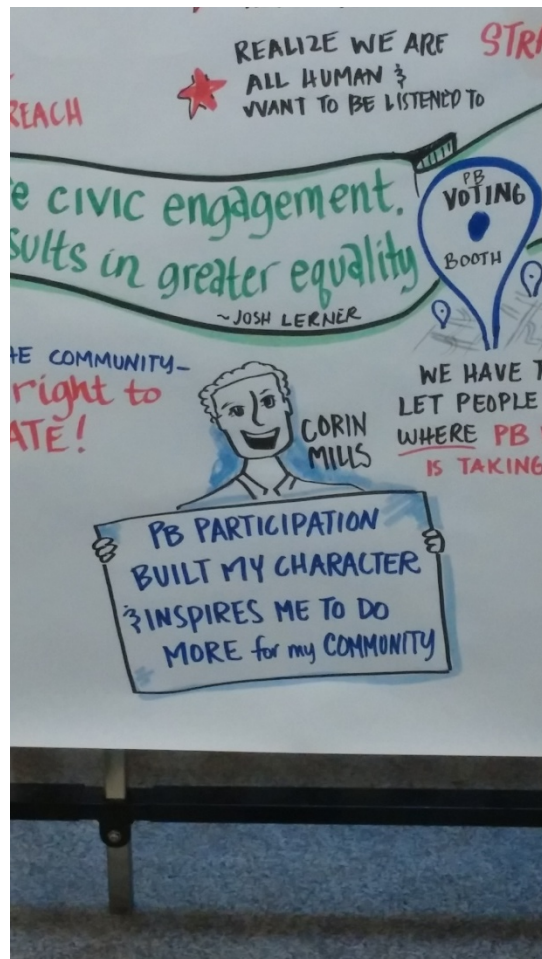 REALIZE WE ARE
ALL HUMAN &
WANT TO BE LISTENED TO
REACH
CIVIC engagement.
in greater equality
~JOSH LERNER
PB
VOTING
BOOTH
COMMUNITY-
right to
CORIN
MILLS
WE HAVE
LET PEOPLE
WHERE PB
IS TAKING
PB PARTICIPATION
BUILT MY CHARACTER
& INSPIRES ME TO DO
MORE for my COMMUNITY